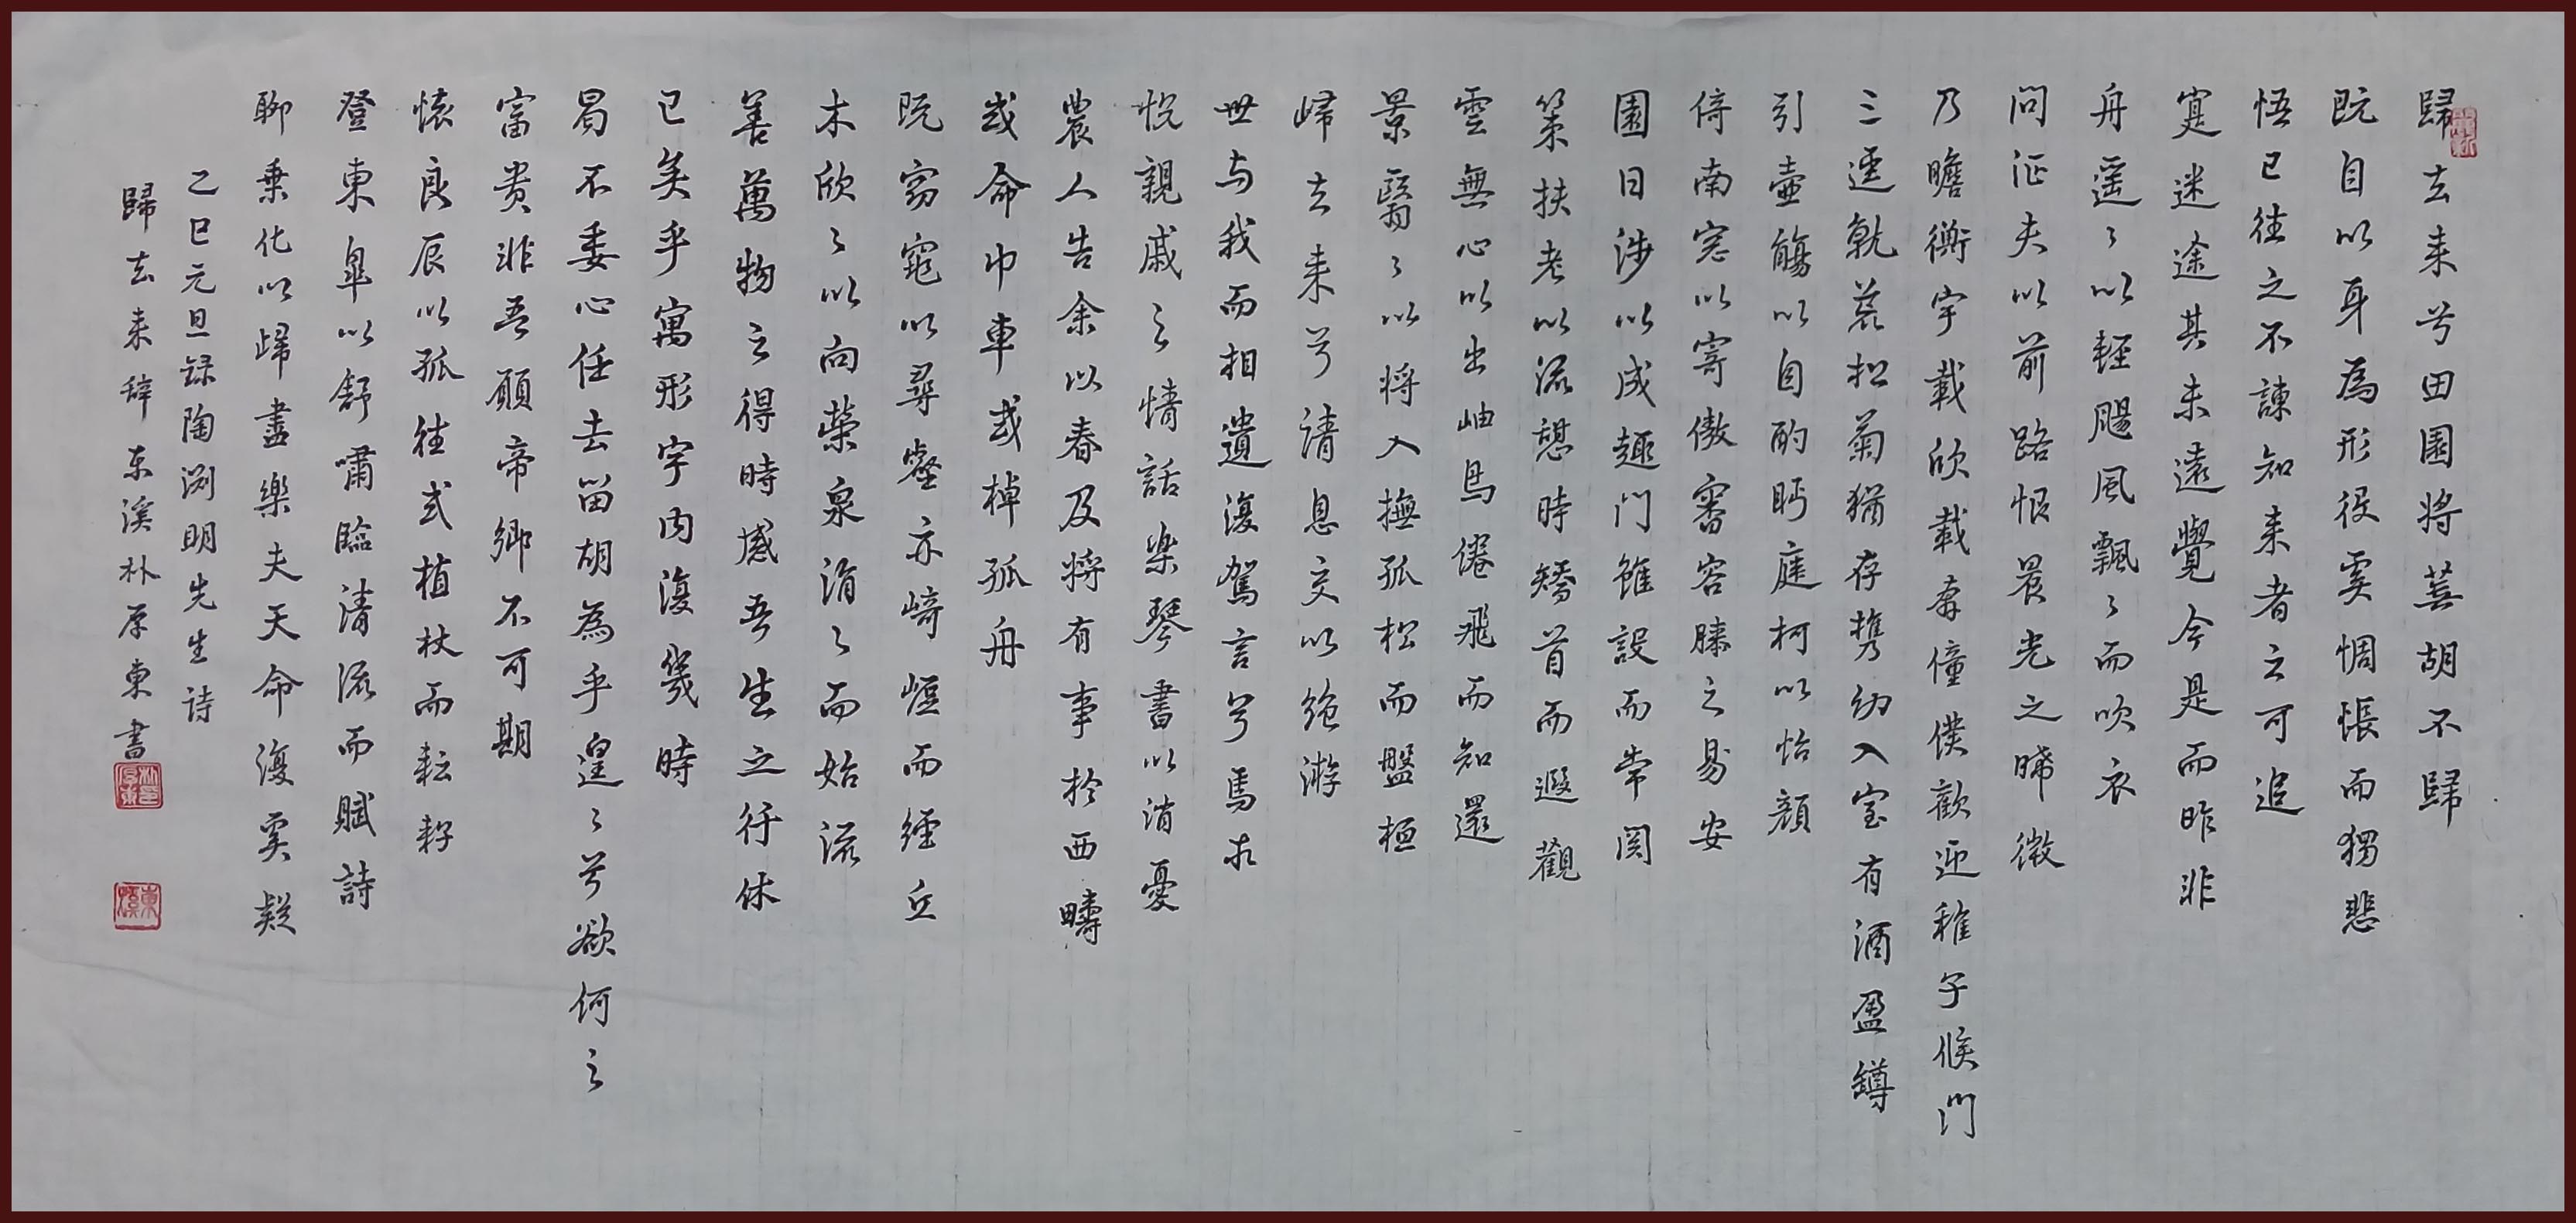 歸去来兮田園将蕪胡不歸
既自以身為形役奚惆悵而猶悲
悟已往之不諫知来者之可追
寔迷途其未遠覺今是而昨非
舟遥〻以輕颺風飄〻而吹衣
問征夫以前路恨晨光之晞微
乃瞻衡宇載欣載奔僮僕歡迎稚子候門
三逕就荒松菊猶存携幼入室有酒盈罇
引壺觴以自酌眄庭柯以怡顔
倚南窓以寄傲審容膝之易安
園日涉以成趣门雖設而常関
策扶老以流憩時矯首而遐觀
雲無心以出岫鳥倦飛而知還
景翳〻以将入撫孤松而盤桓
歸去来兮請息交以絶游
世与我而相遺復駕言兮焉求
悦親戚之情話楽琴書以消憂
農人告余以春及将有事於西疇
或命巾車或棹孤舟
既窈窕以尋壑亦崎嶇而經丘
木欣〻以向荣泉涓〻而始流
善萬物之得時感吾生之行休
已矣乎寓形宇内復幾時
曷不委心任去留胡為乎遑〻兮欲何之
富贵非吾願帝鄉不可期
懐良辰以孤往或植杖而耘耔
登東皐以舒嘯臨清流而賦詩
聊乗化以歸盡樂夫天命復奚疑
乙巳元旦録陶渕明先生詩
歸去来辞东溪朴原東書